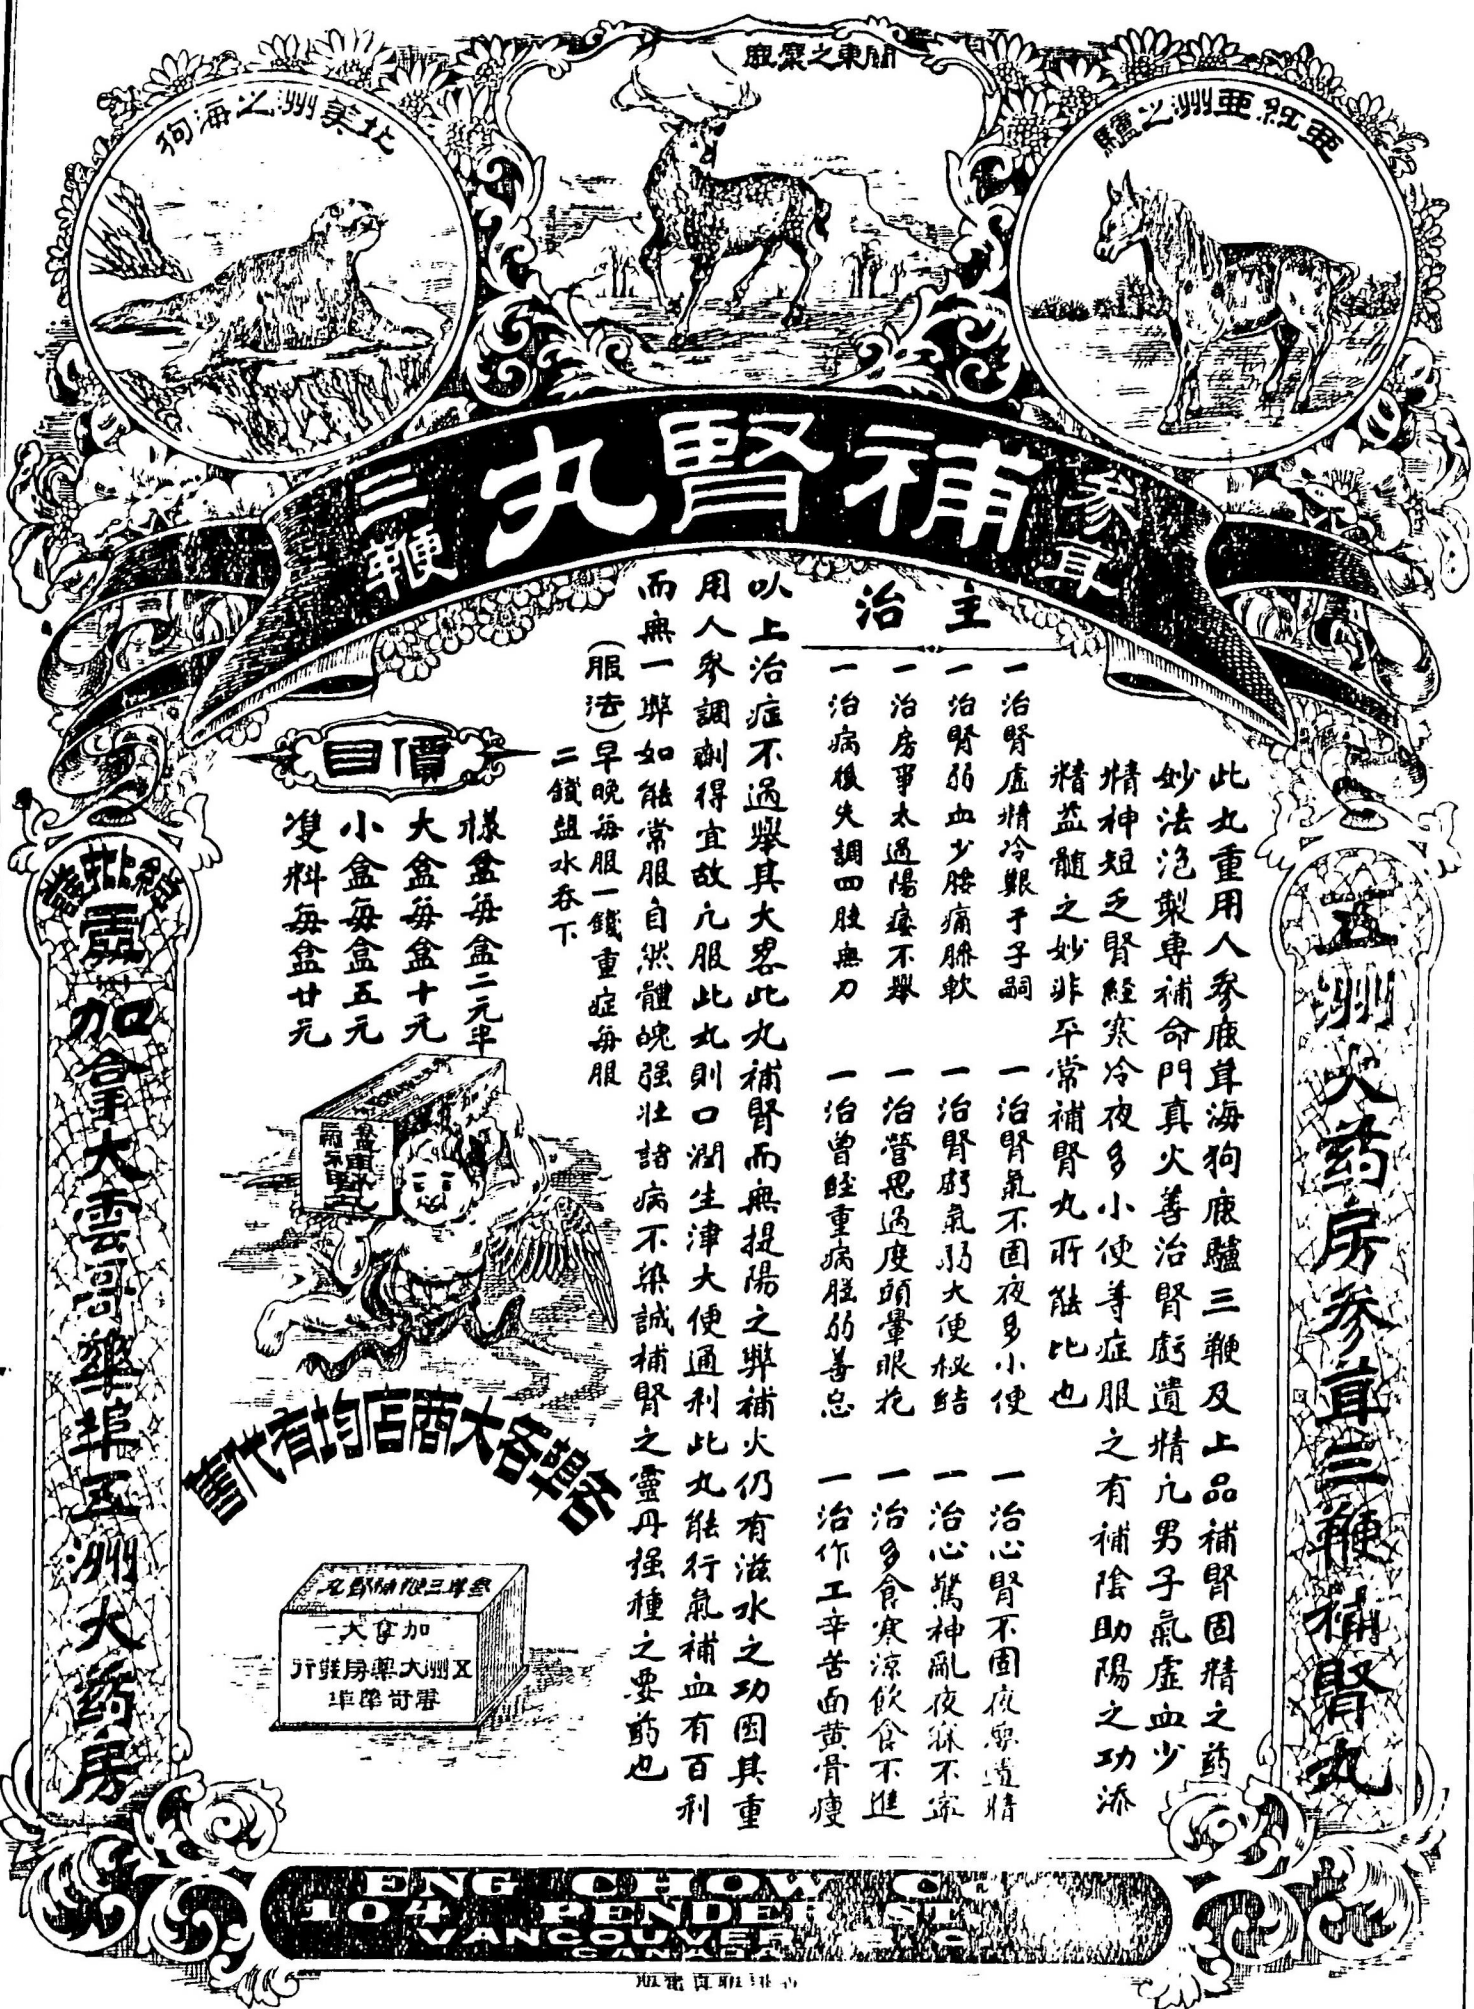 關東之麋鹿
亞紅亞洲之驢
北美洲之海狗
參茸
補腎丸
三鞭
五洲大药房參茸三鞭補腎丸
此丸重用人參鹿茸海狗鹿驢三鞭及上品補腎固精之药
妙法泡製專補命門真火善治腎虧遺精凢男子氣虛血少
精神短乏腎經寒冷夜多小便等症服之有補陰助陽之功添
精益髓之妙非平常補腎丸所能比也
主治
一治腎虛精冷艱于子嗣
一治腎氣不固夜多小便
一治心腎不固夜夢遺精
一治腎弱血少腰痛脚軟
一治腎虧氣弱大便秘結
一治心驚神亂夜寐不寧
一治房事太過陽痿不舉
一治營思過度頭暈眼花
一治多食寒涼飲食不進
一治病後失調四肢無力
一治曾經重病腦弱善忘
一治作工辛苦面黃骨瘦
以上治症不過舉其大畧此丸補腎而無提陽之弊補火仍有滋水之功因其重
用人參調劑得宜故凢服此丸則口潤生津大便通利此丸能行氣補血有百利
而無一弊如能常服自然體魄强壯諸病不染誠補腎之靈丹强種之要药也
(服法)早晚每服一錢重症每服
二錢盐水吞下
價目
樣盒每盒二元半
大盒每盒十元
小盒每盒五元
雙料每盒廿元
各埠各大商店均有代售
參茸三鞭補腎丸
加拿大
五洲大藥房發行
雲哥華埠
總批發處
加拿大雲哥華埠五洲大药房
ENG CHOW C
104 PENDER ST.
VANCOUVER B.C.
CANADA